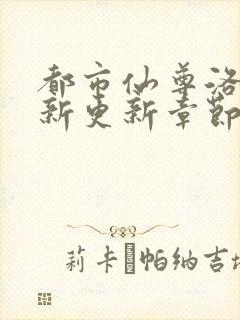 都市仙尊洛
新更新章節
莉卡·帕纳吉